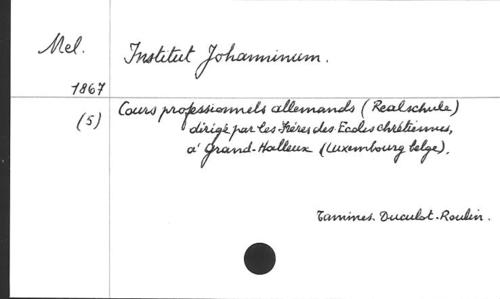 Mel. Institut Johanninum.
1867
(5) Cours professionnels allemands (Realschule)
dirigé par les Frères des Ecoles chrétiennes,
à Grand-Halleux (Luxembourg belge).
Tamines. Duculot-Roulin.